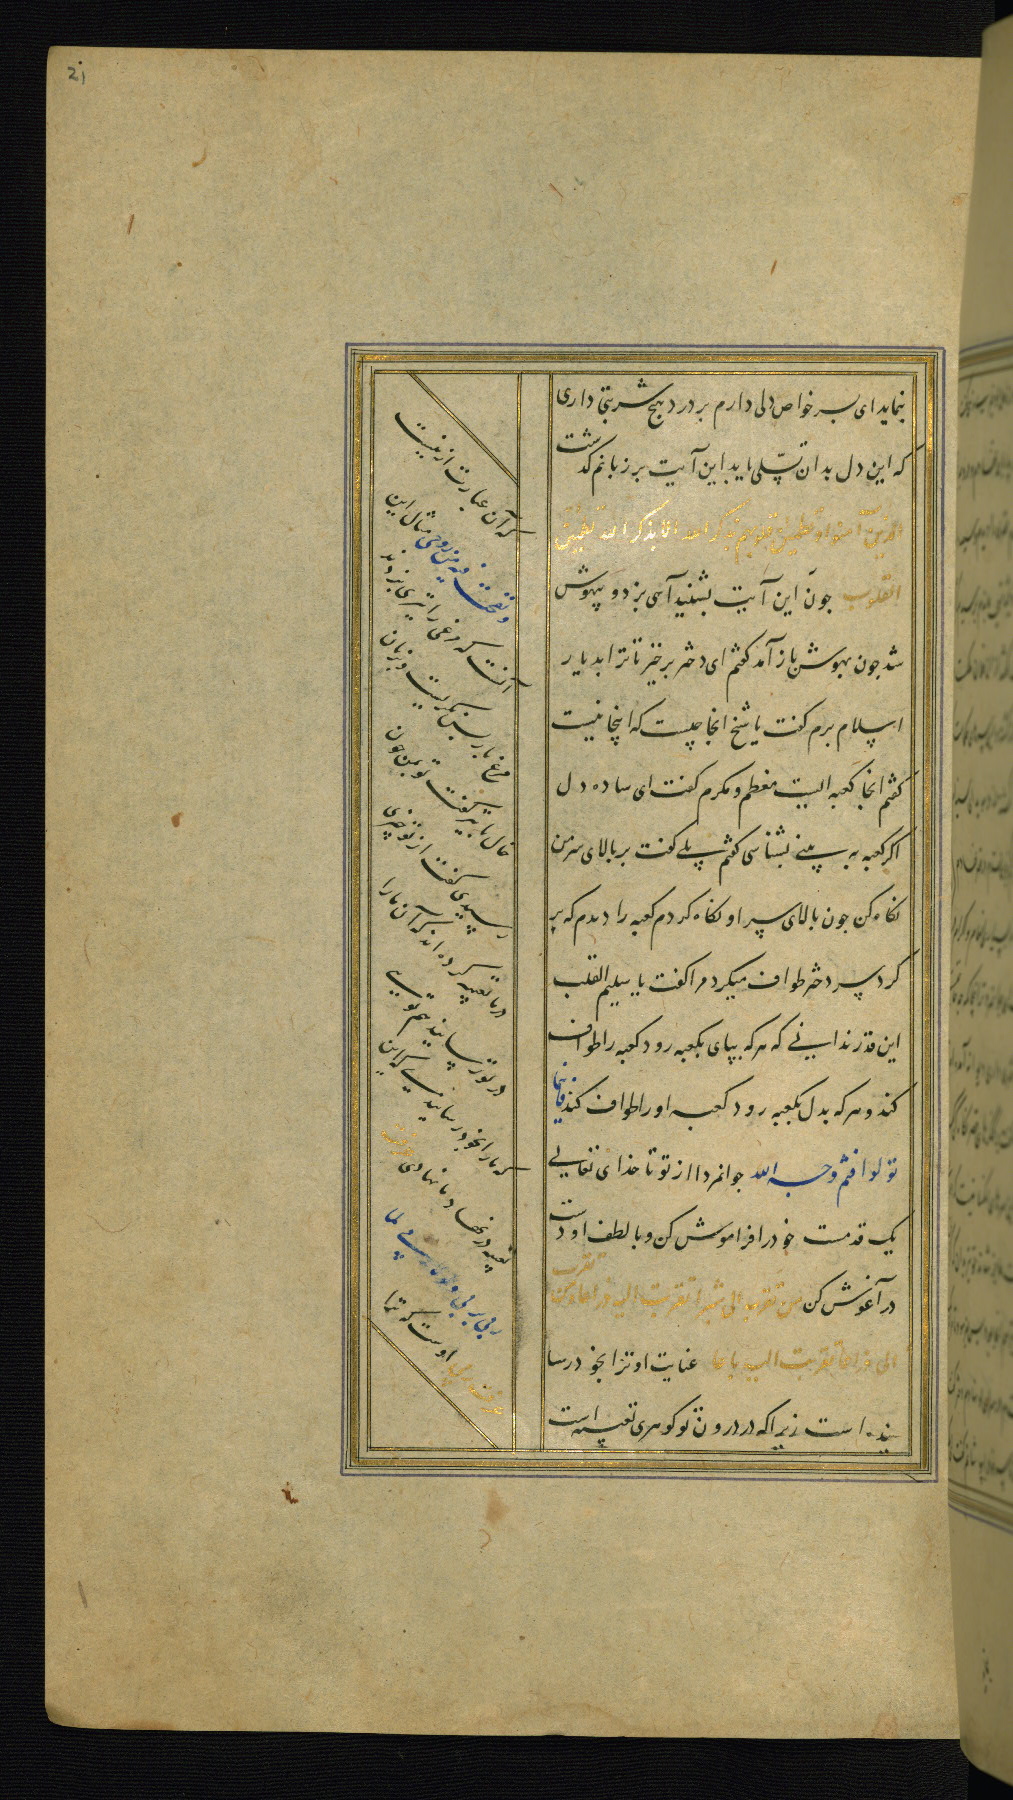 بنماید ای سر خواص دلی دارم بر درد هیچ شربتی داری
که این دل بدان تسلی یابد این آیت بر زبانم گذشت
الذین آمنوا و تطمئن قلوبهم بذکر الله الا بذکر الله تطمئن
القلوب چون این آیت بشنید آهی بزد و بیهوش
شد چون بهوش باز آمد گفتم ای دختر برخیز تا ترا بدیار
اسلام برم گفت یا شیخ آنجا چیست که اینجا نیست
گفتم آنجا کعبه البیت معظم و مکرم گفت ای ساده دل
اگر کعبه به بینی بشناسی گفتم بلی گفت بر بالای سر من
نگاه کن چون بالای سر او نگاه کردم کعبه را دیدم که بر
گرد سر دختر طواف میکرد مرا گفت یا سلیم القلب
این قدر ندانی که هر که بپای بکعبه رود کعبه را طواف
کند و هر که بدل بکعبه رود کعبه او را طواف کند فاینما
تولوا فثم وجه الله جوانمردا از تو تا خدای تعالی
یک قدمست خود را فراموش کن و با لطف او دست
در آغوش کن من تقرب الی شبرا تقربت الیه ذراعا و من تقرب
الی ذراعا تقربت الیه باعا عنایت او ترا بخود رسا
نیده است زیرا که در درون تو گوهری تعبیه است
که آن عبارت از نیست
و نفخت فیه من روحی مثال این
آنست که مرغی را تیری بزدند
مرغ باز پس نگریست و بزبان
حال با تیر گفت تو بمن چون
رسیدی گفت از تو چیزی
در ما تعبیه کرده اند که آن ما را
در تو رسانید
که ما را بخود رسانید که این
تعبیه در نهاد ما نهادی عرفت
ربی بربی و لولا ربی لما
عرفت ربی اوست که ترا